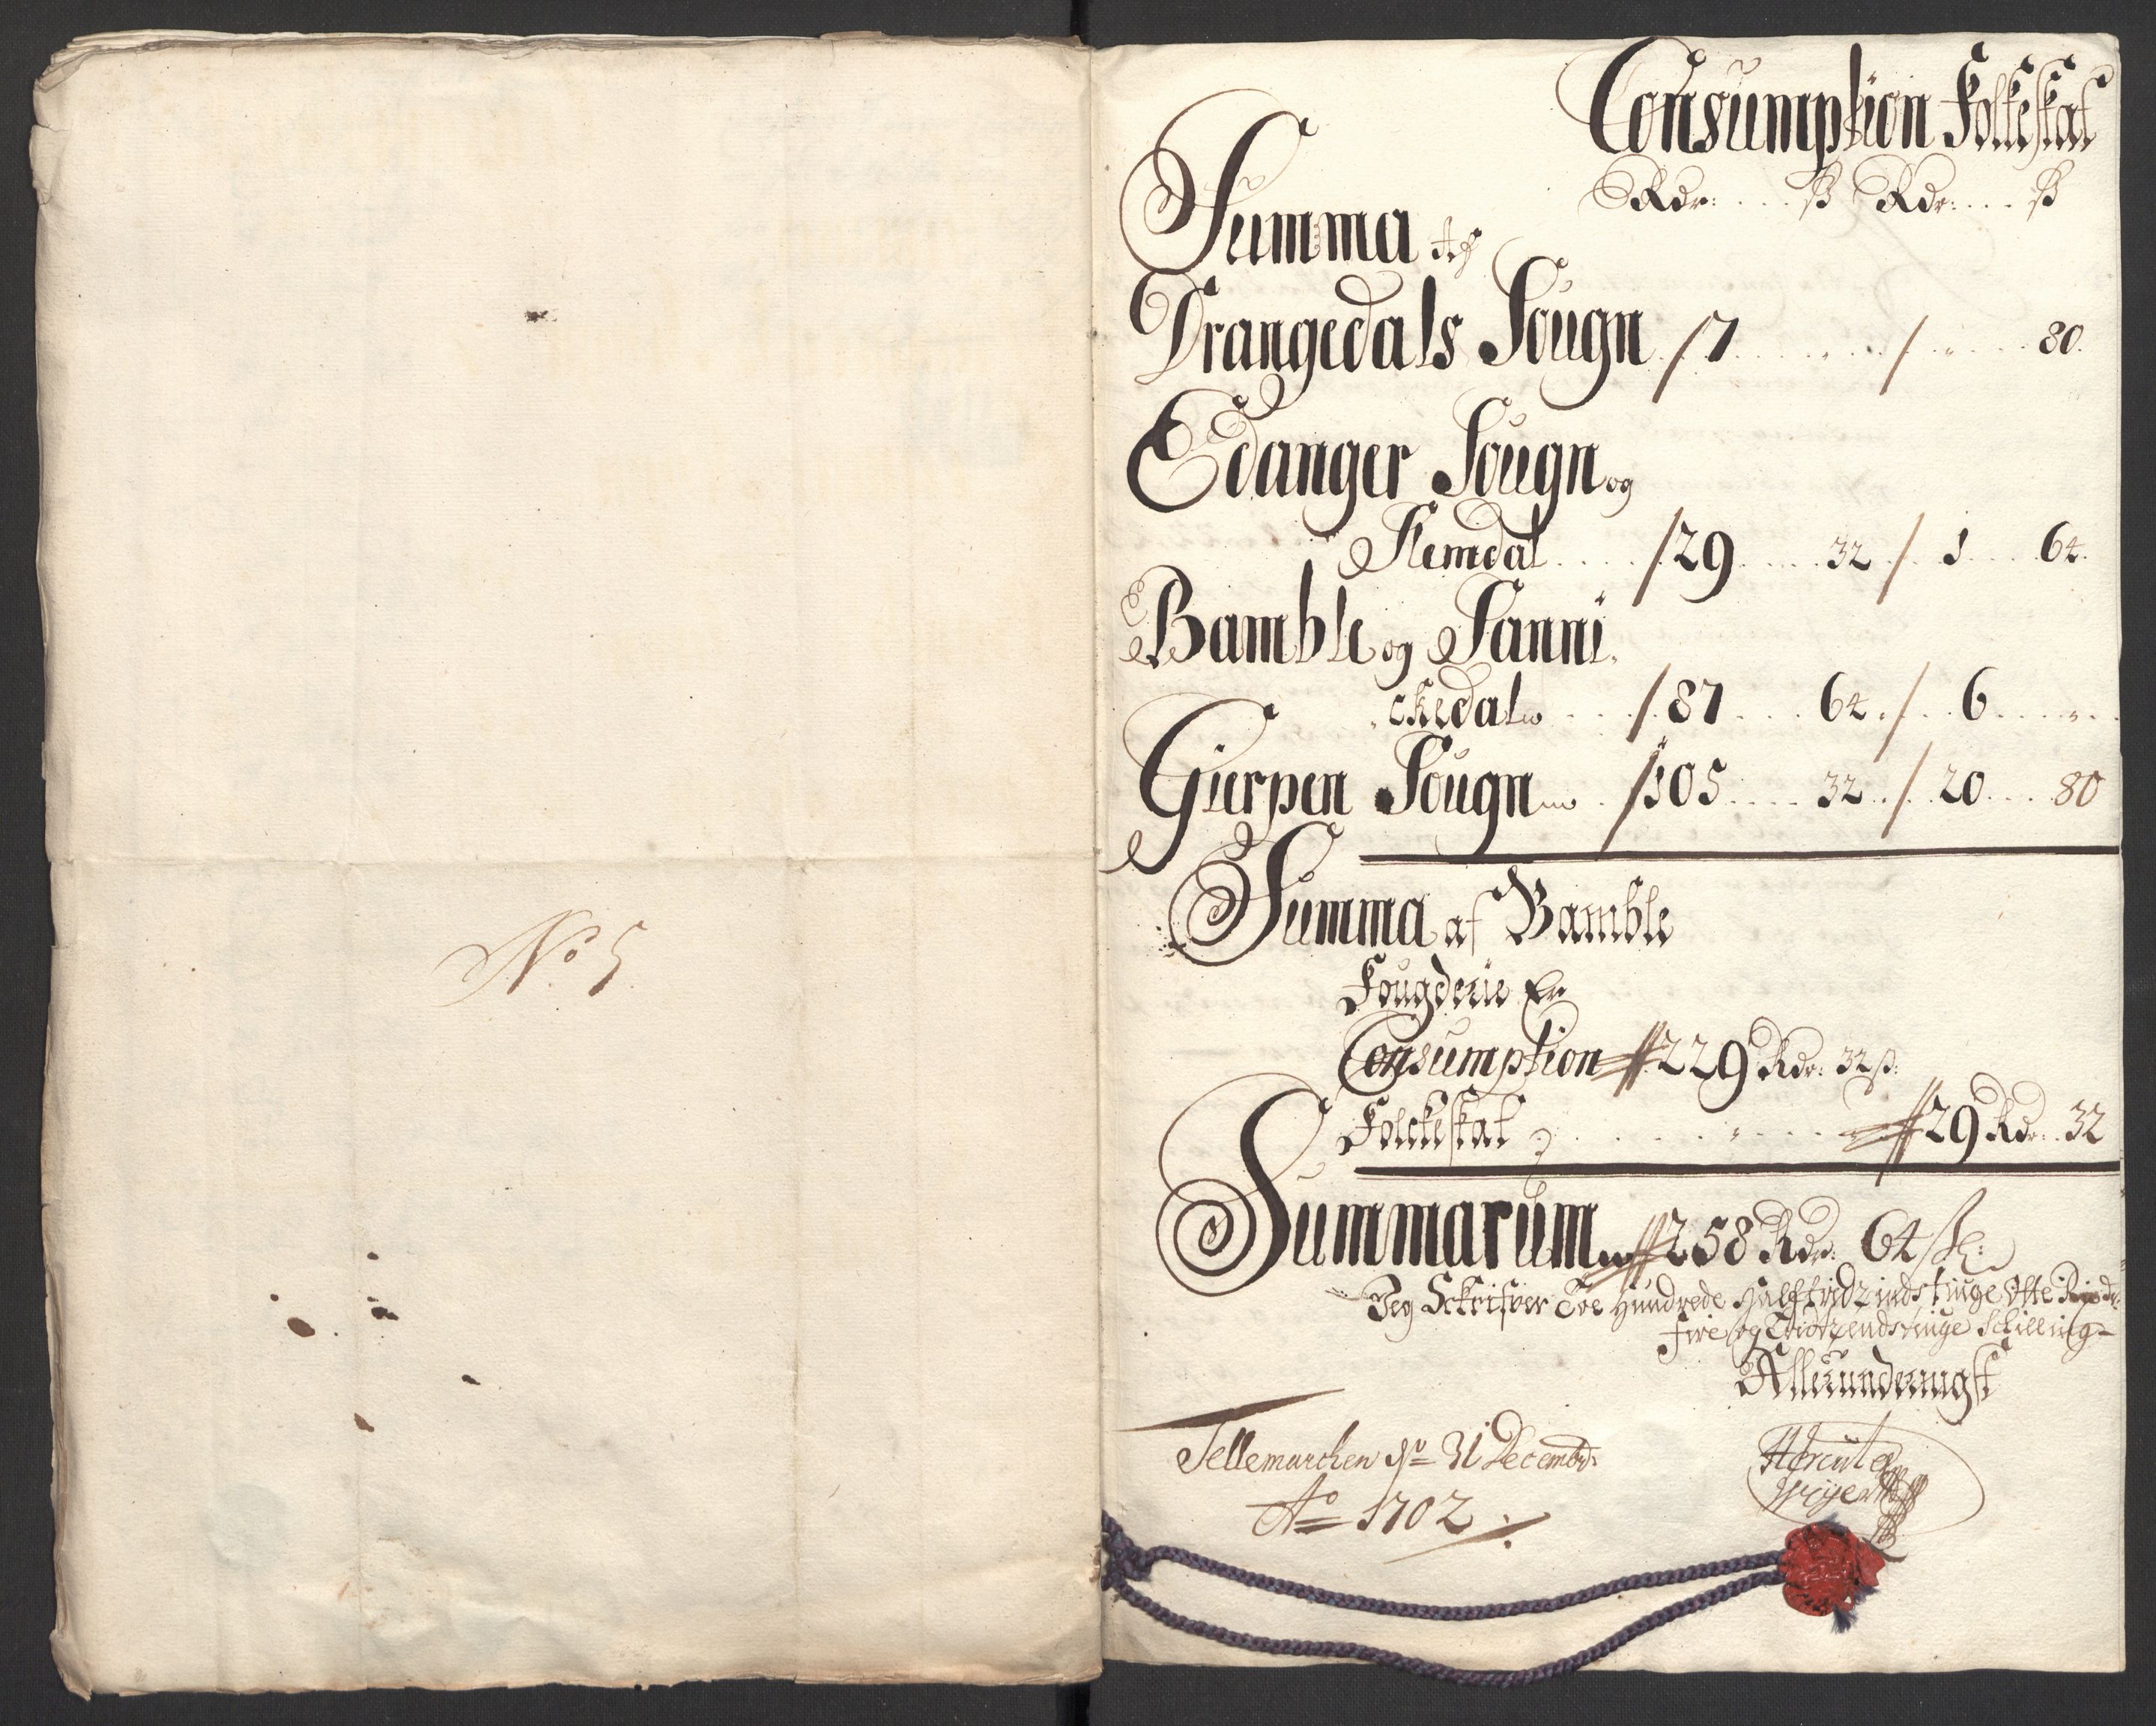 No 5
Consumption Folkeskat
Rdr: ... ß Rdr: ... ß
Summa Af
Drangedals Sougn / 7 ... „ ... / „ ... 80.
Edanger Sougn og
Slemdal .... / 29 .... 32 / 1 ... 64.
Bamble og Sanni
ckedal ... / 87 ... 64 / 6 ... „
Gierpen Sougn ... / 105 ... 32 / 20 ... 80
Summa af Bamble
Fougderie Er
Consumption 229 Rdr: 32 ß:
Folckeskat ... 29 Rdr: 32
Summarum 258 Rdr: 64 ß:
Jeg Schrifver Toe Hundrede Halftridzindstiuge Otte Rixdr:
fire og Tridzendstiuge Schilling
Allerunderdnigst
Tellemarchen d: 31 Decembr:
Ao 1702
Hercules
Weyer